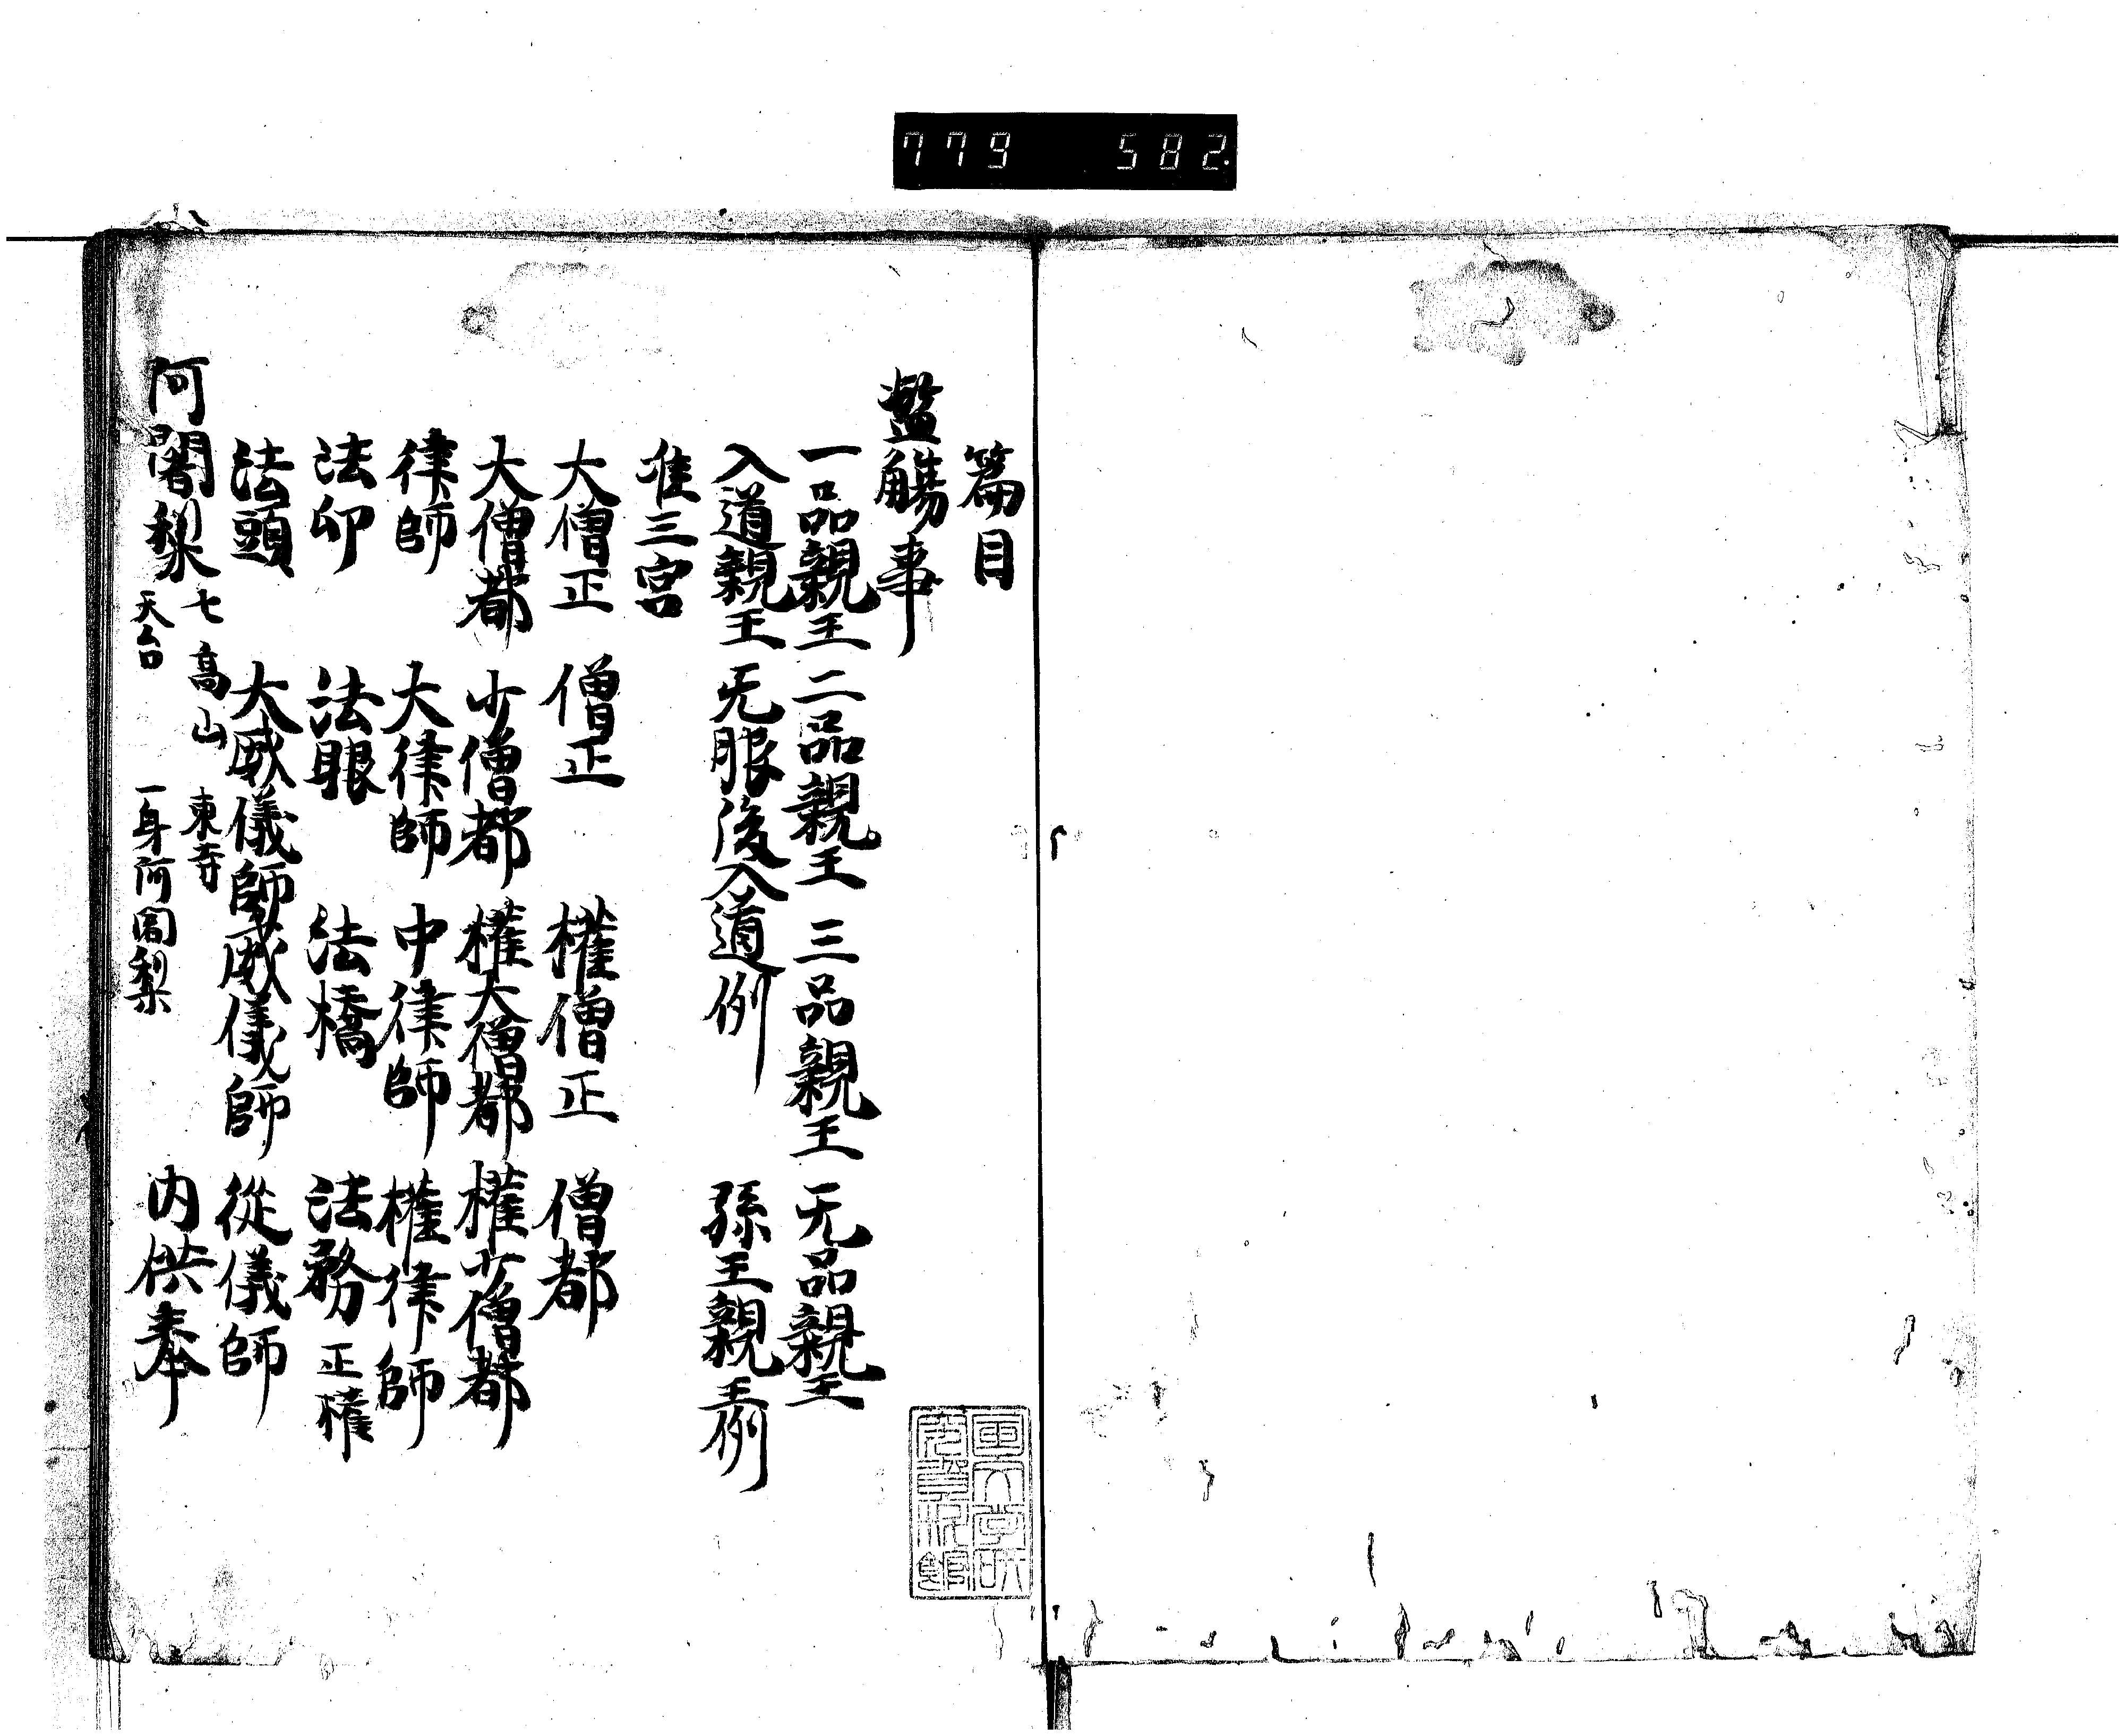 779 582
篇目
濫觴事
一品親王 二品親王 三品親王 无品親王
入道親王 无服後入道例 孫王親王例
准三宮
大僧正 僧正 權僧正 僧都
大僧都 少僧都 權大僧都 權少僧都
律師 大律師 中律師 權律師
法印 法眼 法橋 法務 正權
法頭 大威儀師 威儀師 從儀師
阿闍梨 七高山 東寺 天台 一身阿闍梨 内供奉